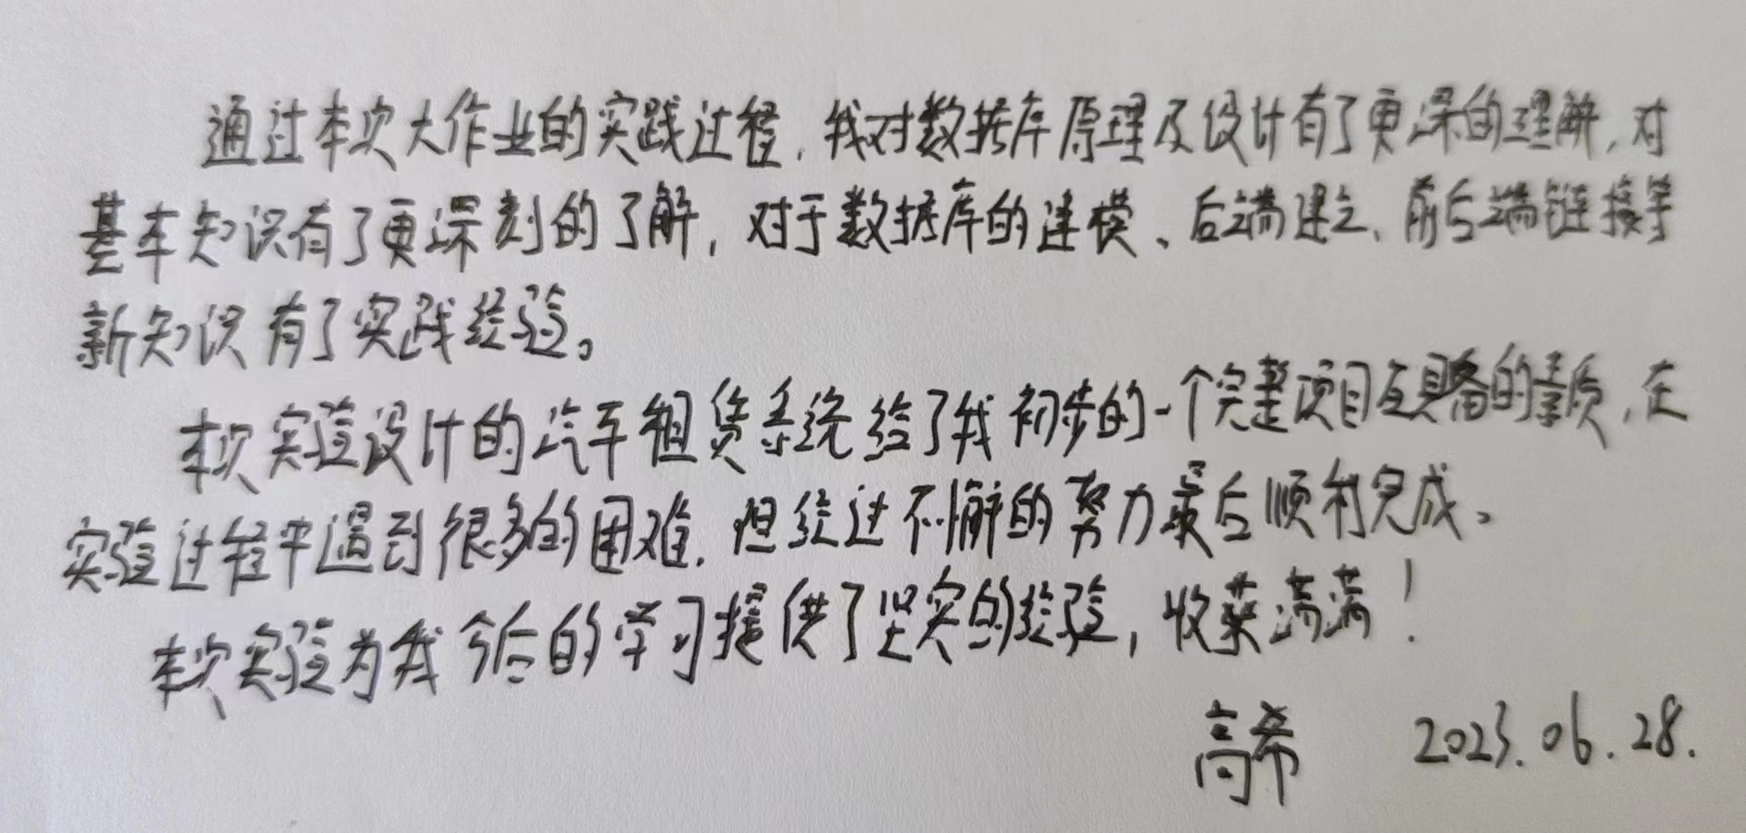 通过本次大作业的实践过程,我对数据库原理及设计有了更深的理解,对
基本知识有了更深刻的了解,对于数据库的建模、后端建立、前后端链接等
新知识有了实践经验。
本次实验设计的汽车租赁系统给了我初步的一个完整项目应具备的素质,在
实验过程中遇到很多的困难,但经过不懈的努力最后顺利完成。
本次实验为我今后的学习提供了坚实的经验,收获满满!
高希 2023.06.28.